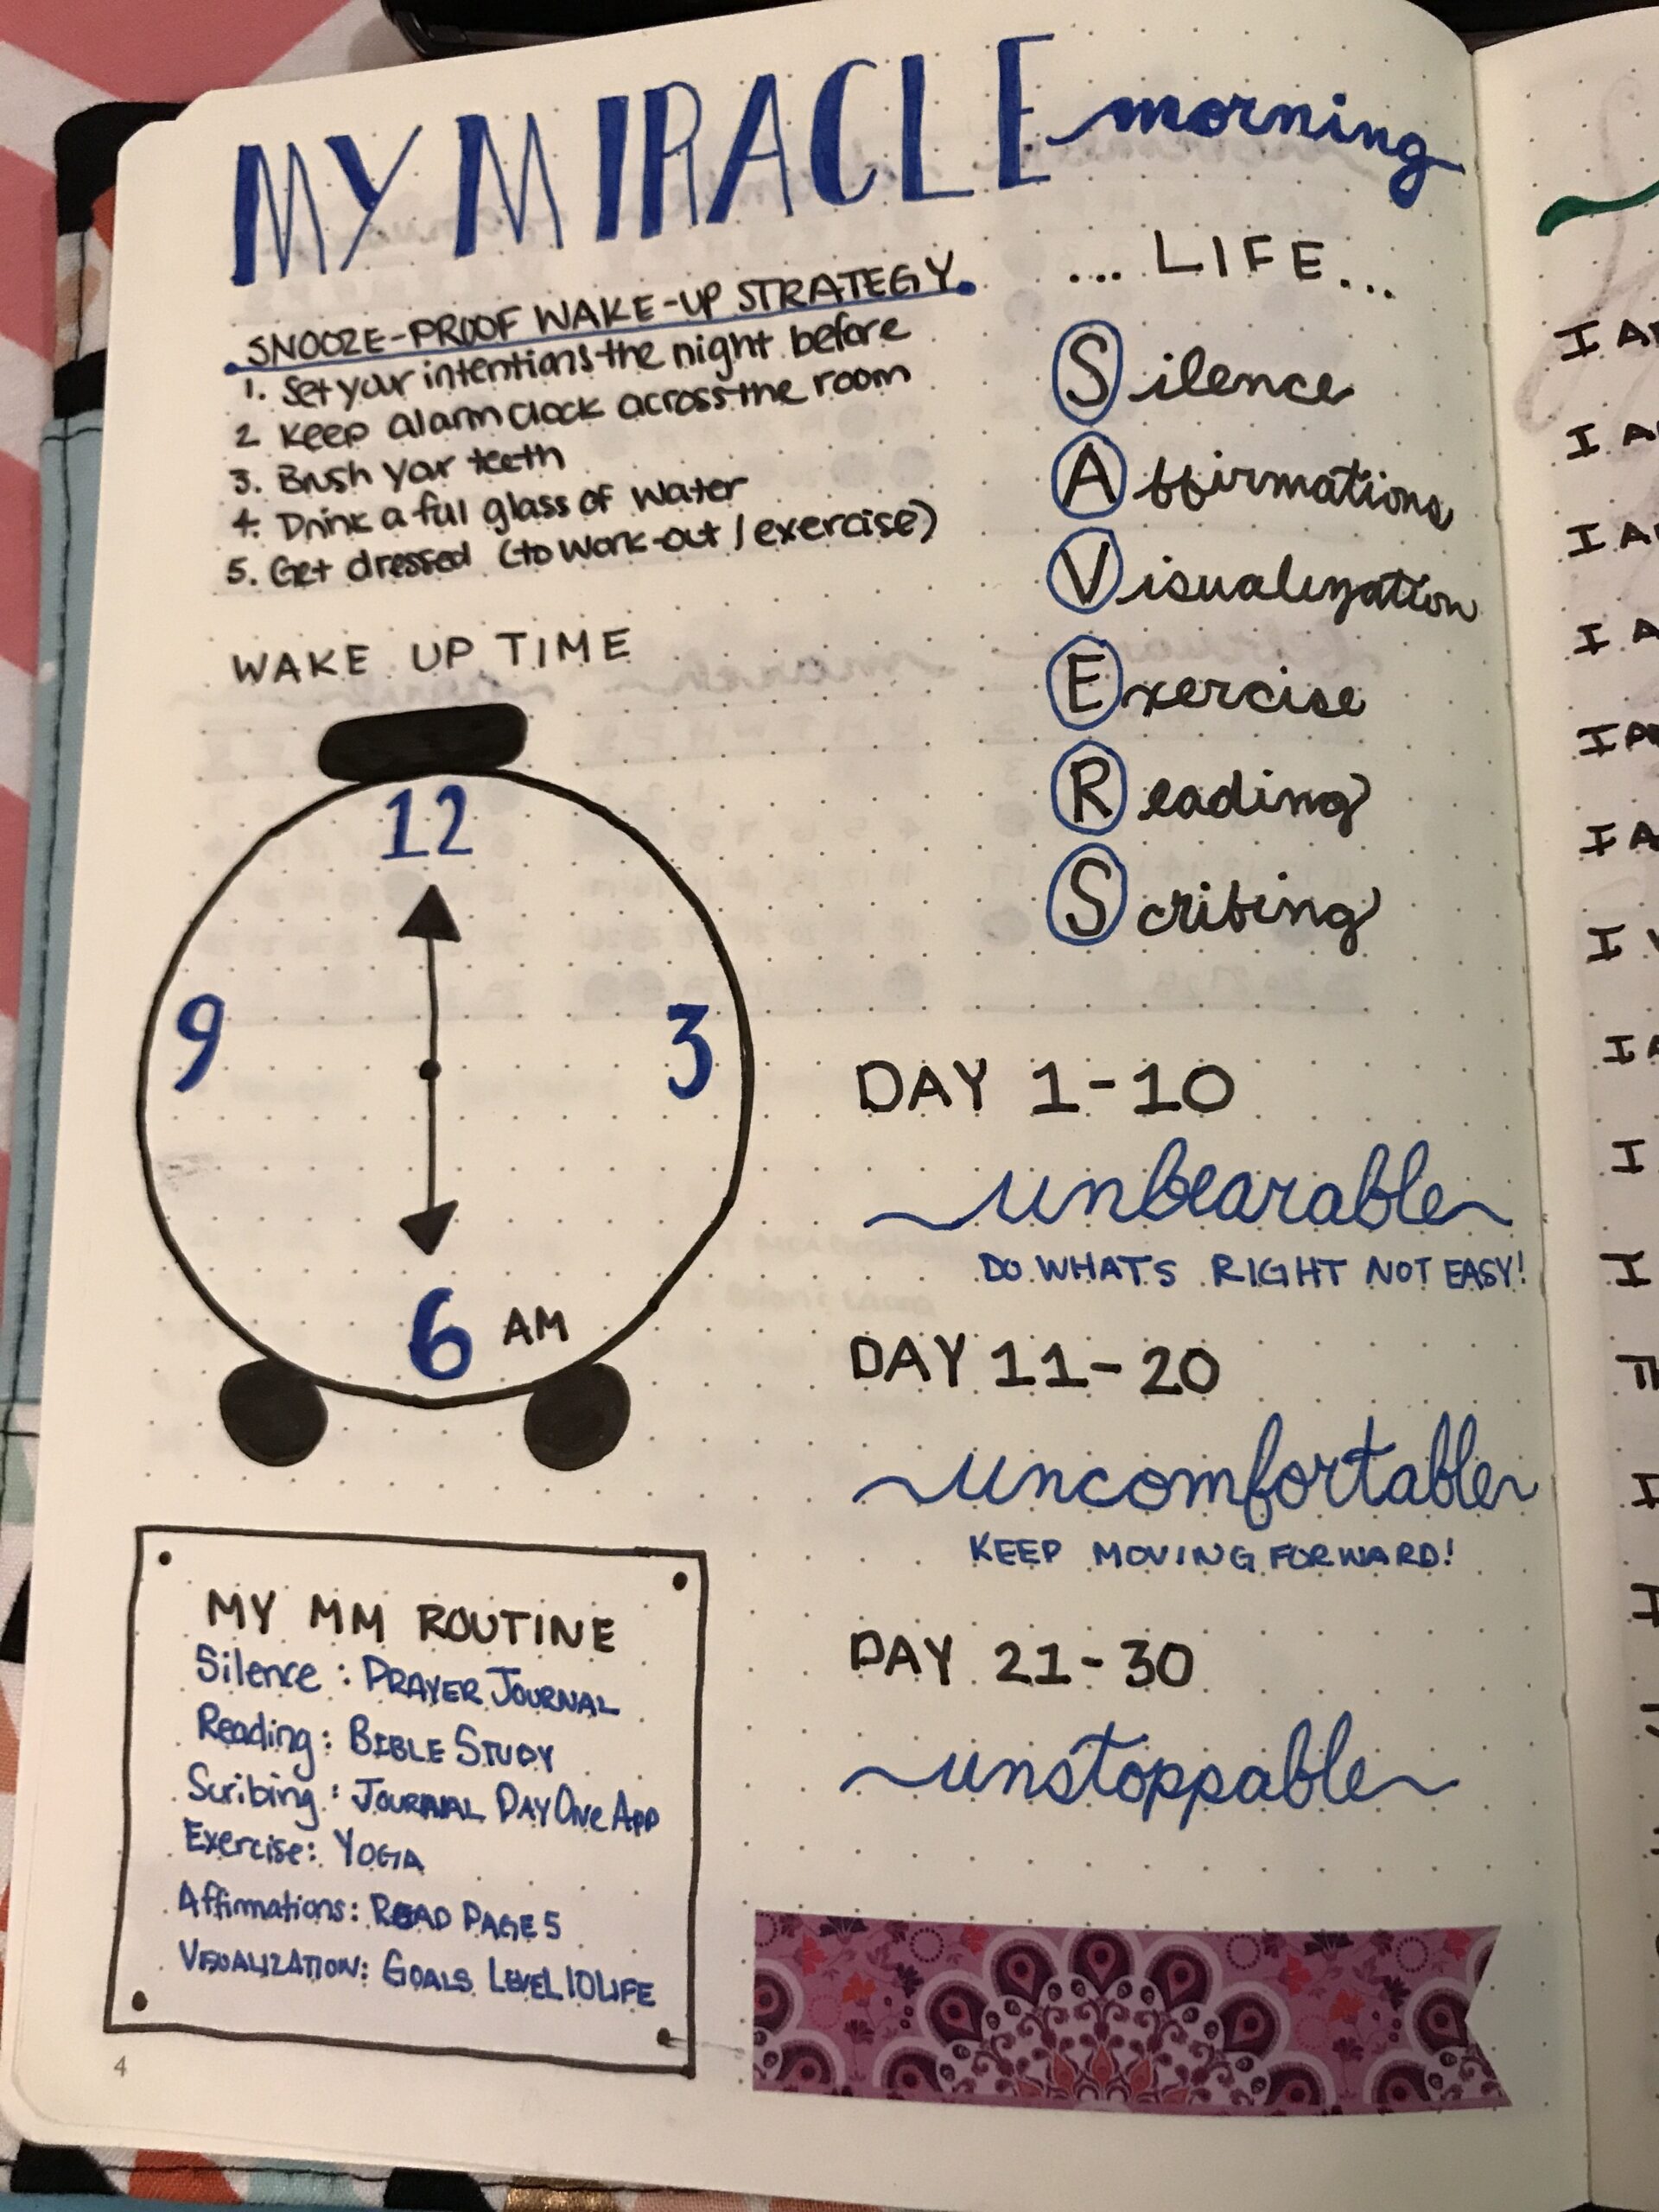 MY MIRACLE morning
SNOOZE-PROOF WAKE-UP STRATEGY
1. Set your intentions the night before
2 Keep alarm clock across the room
3. Brush your teeth
4. Drink a full glass of water
5. Get dressed (to work-out / exercise)
WAKE UP TIME
12
9
3
6 AM
MY MM ROUTINE
Silence : PRAYER JOURNAL
Reading: BIBLE STUDY
Scribing: JOURNAL DAY ONE APP
Exercise: YOGA
Affirmations: READ PAGE 5
VISUALIZATION: GOALS LEVEL 10 LIFE
4
... LIFE...
Silence
Affirmations
Visualization
Exercise
Reading
Scribing
DAY 1-10
unbearable
DO WHAT'S RIGHT NOT EASY!
DAY 11-20
uncomfortable
KEEP MOVING FORWARD!
DAY 21-30
unstoppable
I
I
I
I
I
I
I
I
I
I
I
I